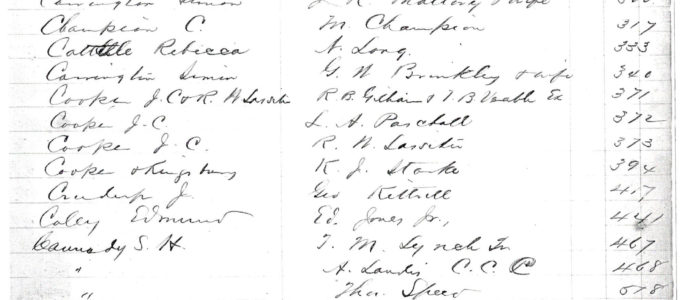 Carrington Simon L. R. Mallory & wife
Champion C. M. Champion 317
Cattle Rebecca N. Long. 333
Carrington Simon G. W. Brinkley & wife 340
Cooper J. C & R. W Lassiter R. B. Gilliam & T. B Venable Ex 371
Cooper J. C. L. A. Paschall 372
Cooper J. C. R. W. Lassiter 373
Cooper & Kingsbury K. J. Starke 394
Crudup J. Geo Kittrell 417
Coley Edmund Ed. Jones Jr., 441
Cannady S. H. T. M. Lynch Tr 467
" A. Landis C. C. C 468
" Thos. Speed 578